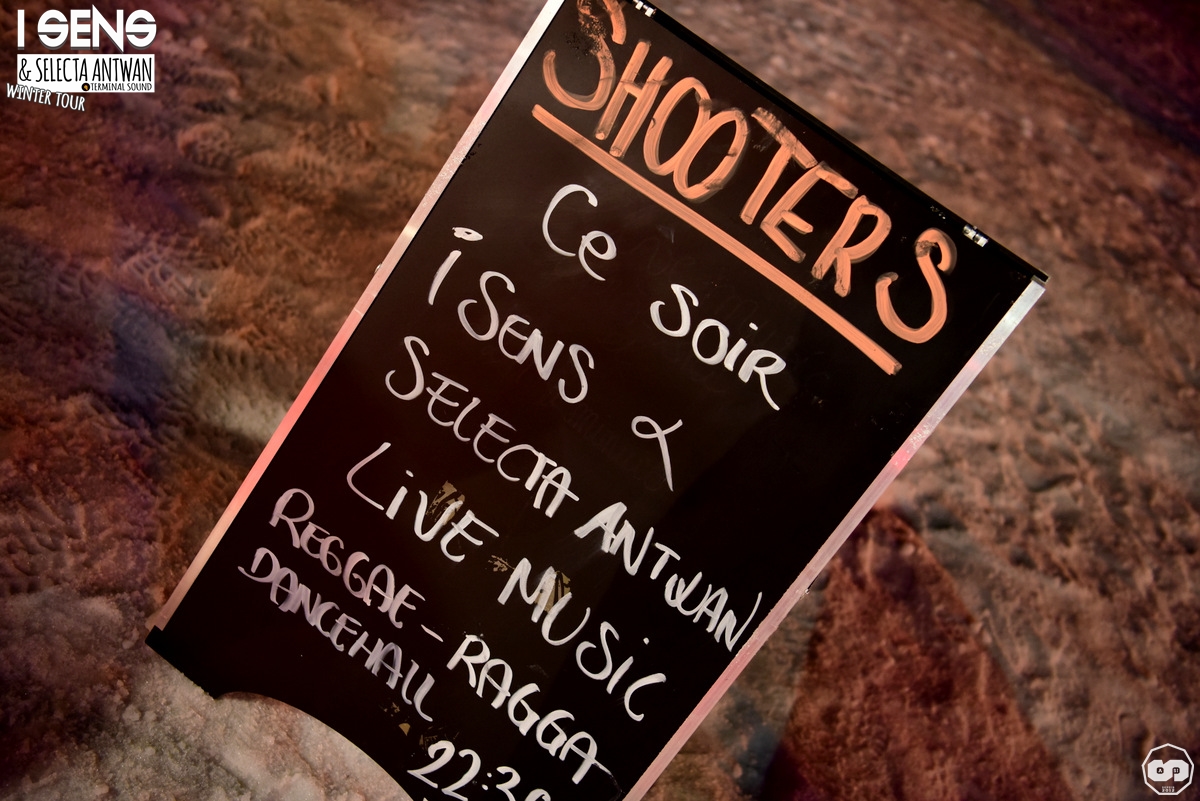 I SENS
& SELECTA ANTWAN
TERMINAL SOUND
WINTER TOUR
SHOOTERS
Ce SOiR
I SENS &
SELECTA ANTWAN
LiVE MUSiC
REGGAE - RAGGA
DANCEHALL